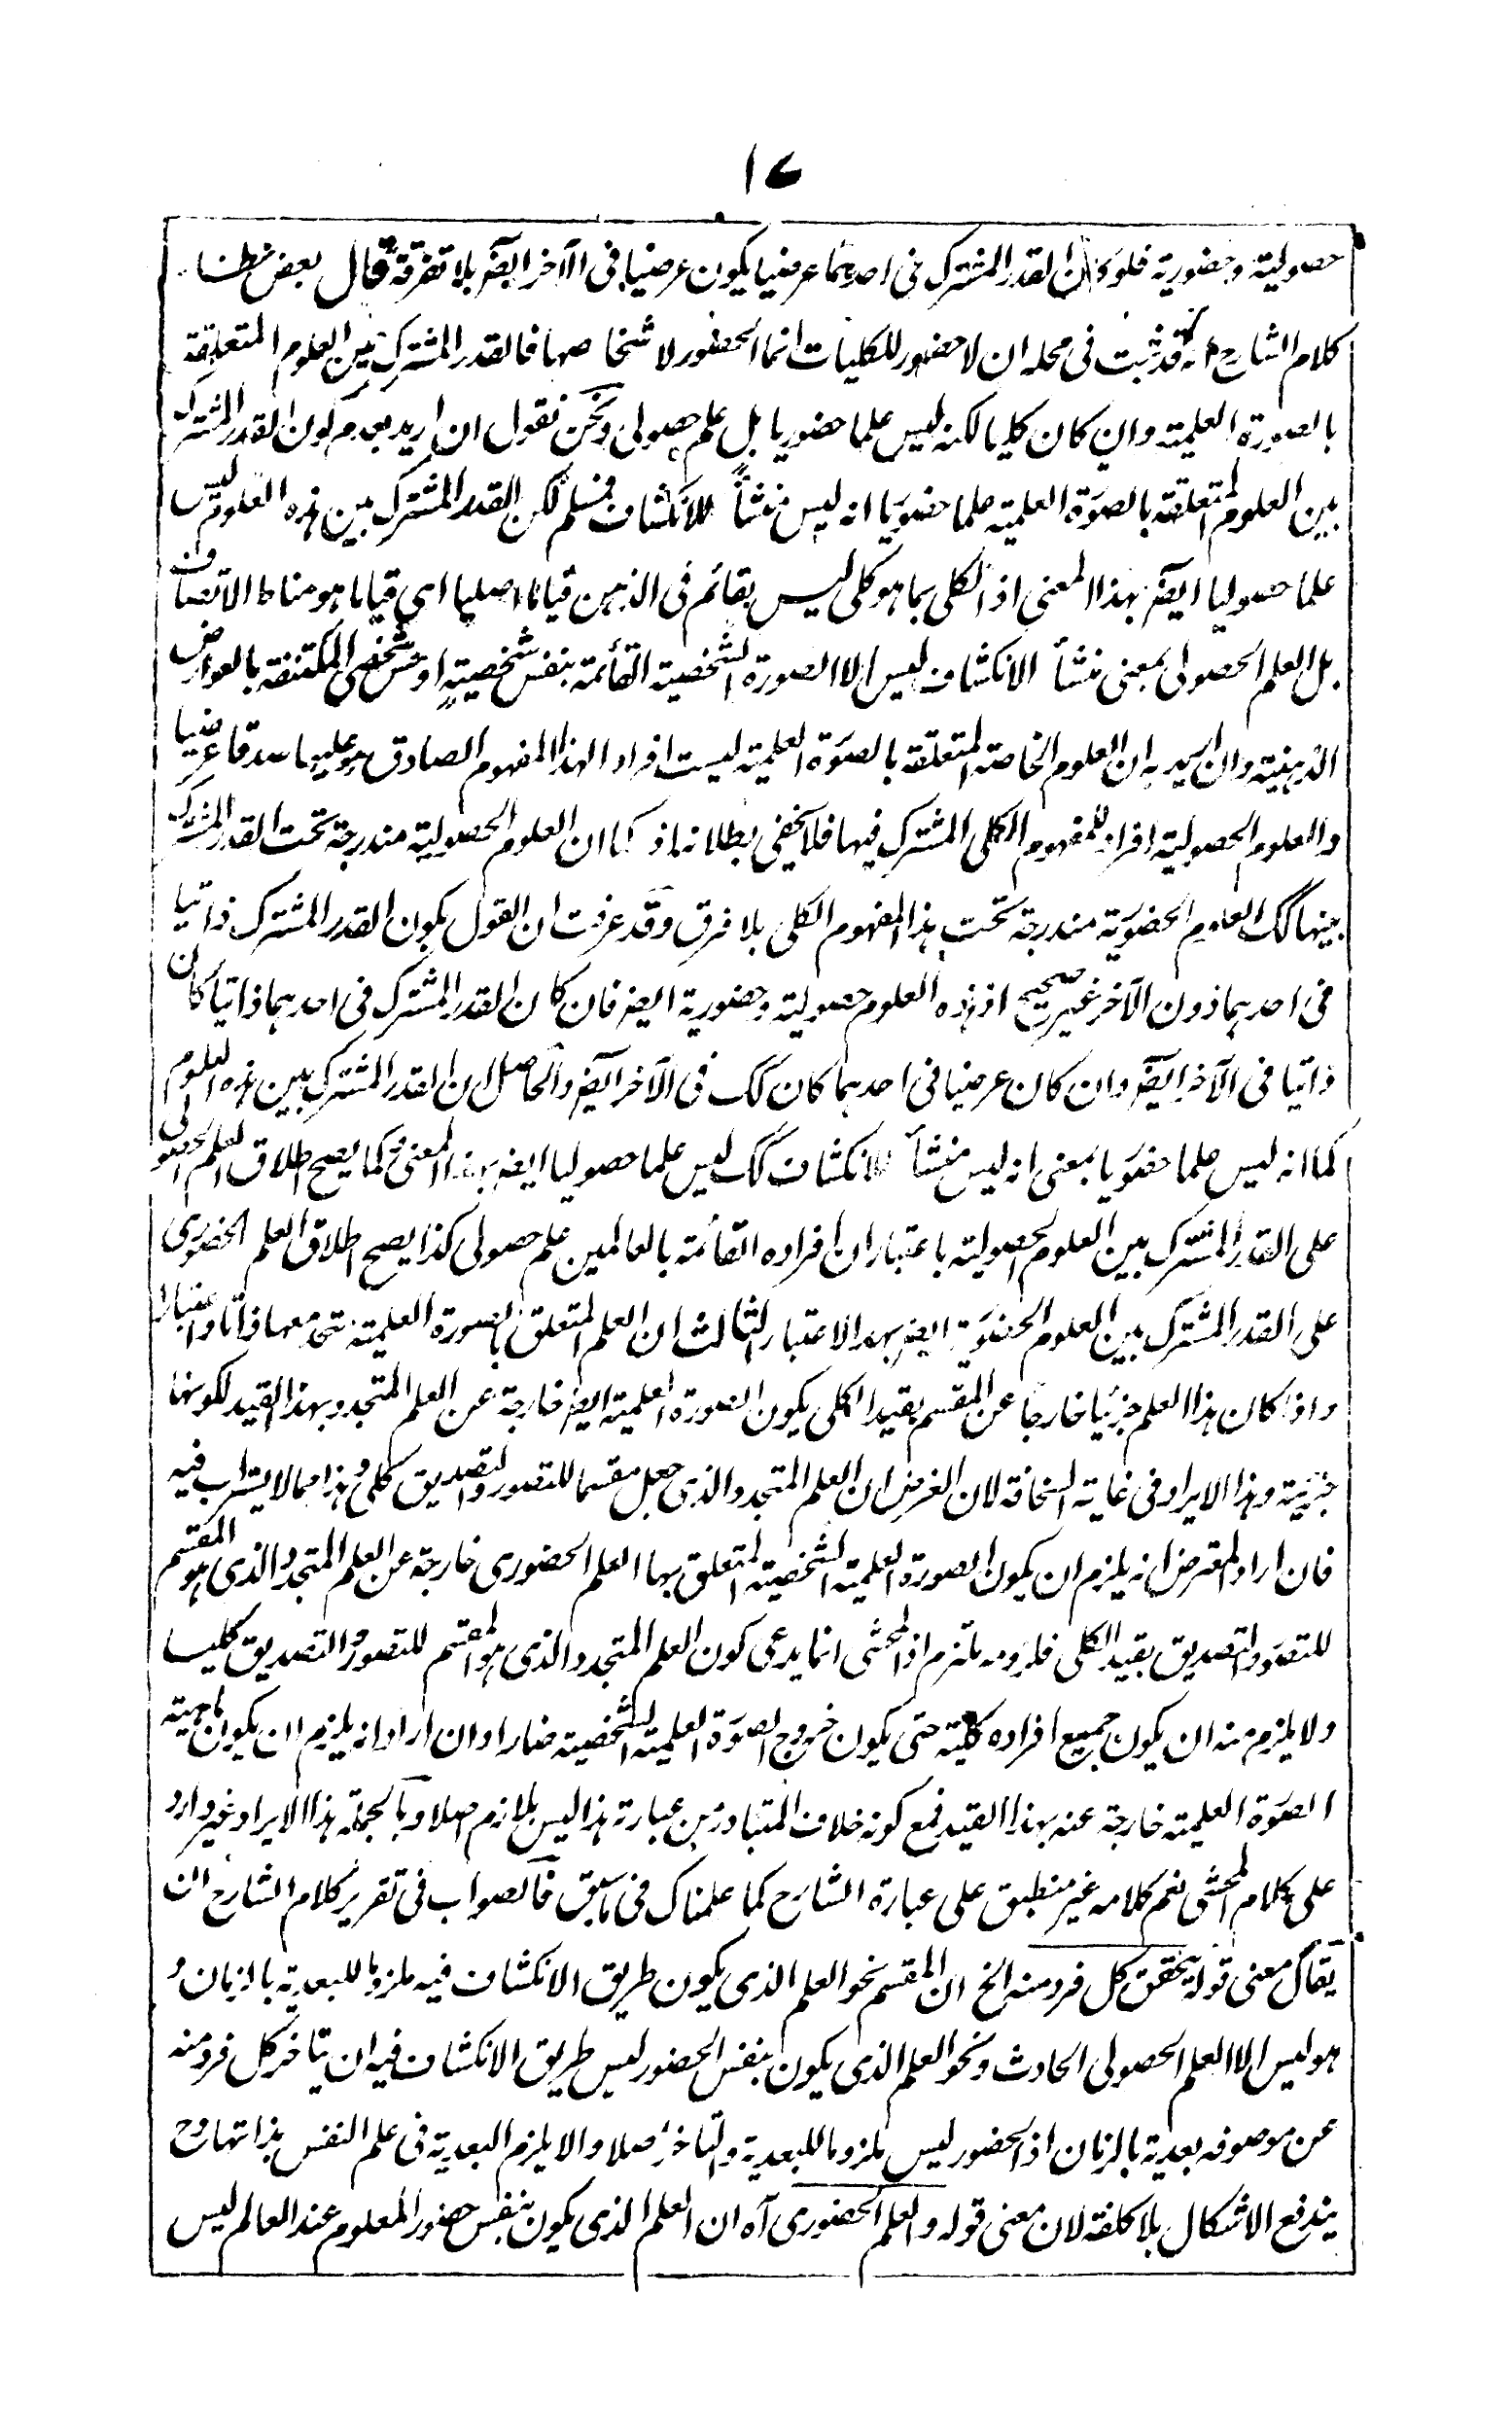 ١٧
حصولية وحضورية فلو كان القدر المشترك في احدهما عرضيا يكون عرضيا في الآخر ايضا بلا تفرقة قال بعض
كلام الشارح انه قد ثبت في محله ان لا حضور للكليات انما الحضور لاشخاصها فالقدر المشترك بين العلوم المتعلقة
بالصورة العلمية وان كان كليا لكنه ليس علما حضوريا بل علم حصولى ونحن نقول ان اريد بعدم كون القدر المشترك
بين العلوم المتعلقة بالصورة العلمية علما حضوريا انه ليس منشأ للانكشاف فمسلم لكن القدر المشترك بين هذه العلوم ليس
علما حصوليا ايضا بهذا المعنى اذ الكلى بما هو كلى ليس بقائم في الذهن قياما اصليا اى قياما هو مناط الاتصاف
بل العلم الحصولى بمعنى منشأ الانكشاف ليس الا الصورة الشخصية القائمة بنفس شخصية او شخص المكتنفة بالعوارض
الذهنية وان اريد به ان العلوم الخاصة المتعلقة بالصورة العلمية ليست افرادا لهذا المفهوم الصادق هو عليها صدقا عرضيا
والعلوم الحصولية افراد للمفهوم الكلى المشترك فيها فلا يخفى بطلانه اذ كما ان العلوم الحصولية مندرجة تحت القدر المشترك
بينها كك العلوم الحضورية مندرجة تحت هذا المفهوم الكلى بلا فرق وقد عرفت ان القول بكون القدر المشترك ذاتيا
في احدهما دون الآخر غير صحيح اذ هذه العلوم حصولية وحضورية ايضا فان كان القدر المشترك في احدهما ذاتيا كان
ذاتيا في الآخر ايضا وان كان عرضيا في احدهما كان كك في الآخر ايضا والحاصل ان القدر المشترك بين هذه العلوم
كما انه ليس علما حضوريا بمعنى انه ليس منشأ للانكشاف كك ليس علما حصوليا ايضا بهذا المعنى وكما يصح اطلاق العلم الحصولى
على القدر المشترك بين العلوم الحصولية باعتبار ان افراده القائمة بالعالمين علم حصولى كذا يصح اطلاق العلم الحضورى
على القدر المشترك بين العلوم الحضورية ايضا بهذا الاعتبار الثالث ان العلم المتعلق بالصورة العلمية متحد معها ذاتا واعتبارا
واذا كان هذا العلم جزئيا خارجا عن المقسم بقيد الكلى يكون الصورة العلمية ايضا خارجة عن العلم المتجدد بهذا القيد لكونها
جزئية وهذا الايراد في غاية السخافة لان الغرض ان العلم المتجدد الذى جعل مقسما للتصور والتصديق كلى وهذا مما لا يستراب فيه
فان اراد المعترض انه يلزم ان يكون الصورة العلمية الشخصية المتعلق بها العلم الحضورى خارجة عن العلم المتجدد الذى هو المقسم
للتصور والتصديق بقيد الكلى فلزومه ملتزم اذ المحشى انما يدعى كون العلم المتجدد الذى هو المقسم للتصور والتصديق كليا
ولا يلزم منه ان يكون جميع افراده كلية حتى يكون خروج الصورة العلمية الشخصية ضارا وان اراد انه يلزم ان يكون ماهية
الصورة العلمية خارجة عنه بهذا القيد فمع كونه خلاف المتبادر من عبارة هذا ليس بلازم اصلا وبالجملة هذا الايراد غير وارد
على كلام المحشى نعم كلامه غير منطبق على عبارة الشارح كما علمناك في ما سبق فالصواب في تقرير كلام الشارح ان
يقال معنى قوله يتحقق كل فرد منه الخ ان المقسم نحو العلم الذى يكون طريق الانكشاف فيه ملزوما للبعدية بالزمان و
هو ليس الا العلم الحصولى الحادث ونحو العلم الذى يكون بنفس الحضور ليس طريق الانكشاف فيه ان يتاخر كل فرد منه
عن موصوفه بعدية بالزمان اذ الحضور ليس ملزوما للبعدية والتاخر اصلا والا يلزم البعدية في علم النفس بذاتها وح
يندفع الاشكال بلا كلفة لان معنى قوله والعلم الحضورى آه ان العلم الذى يكون بنفس حضور المعلوم عند العالم ليس